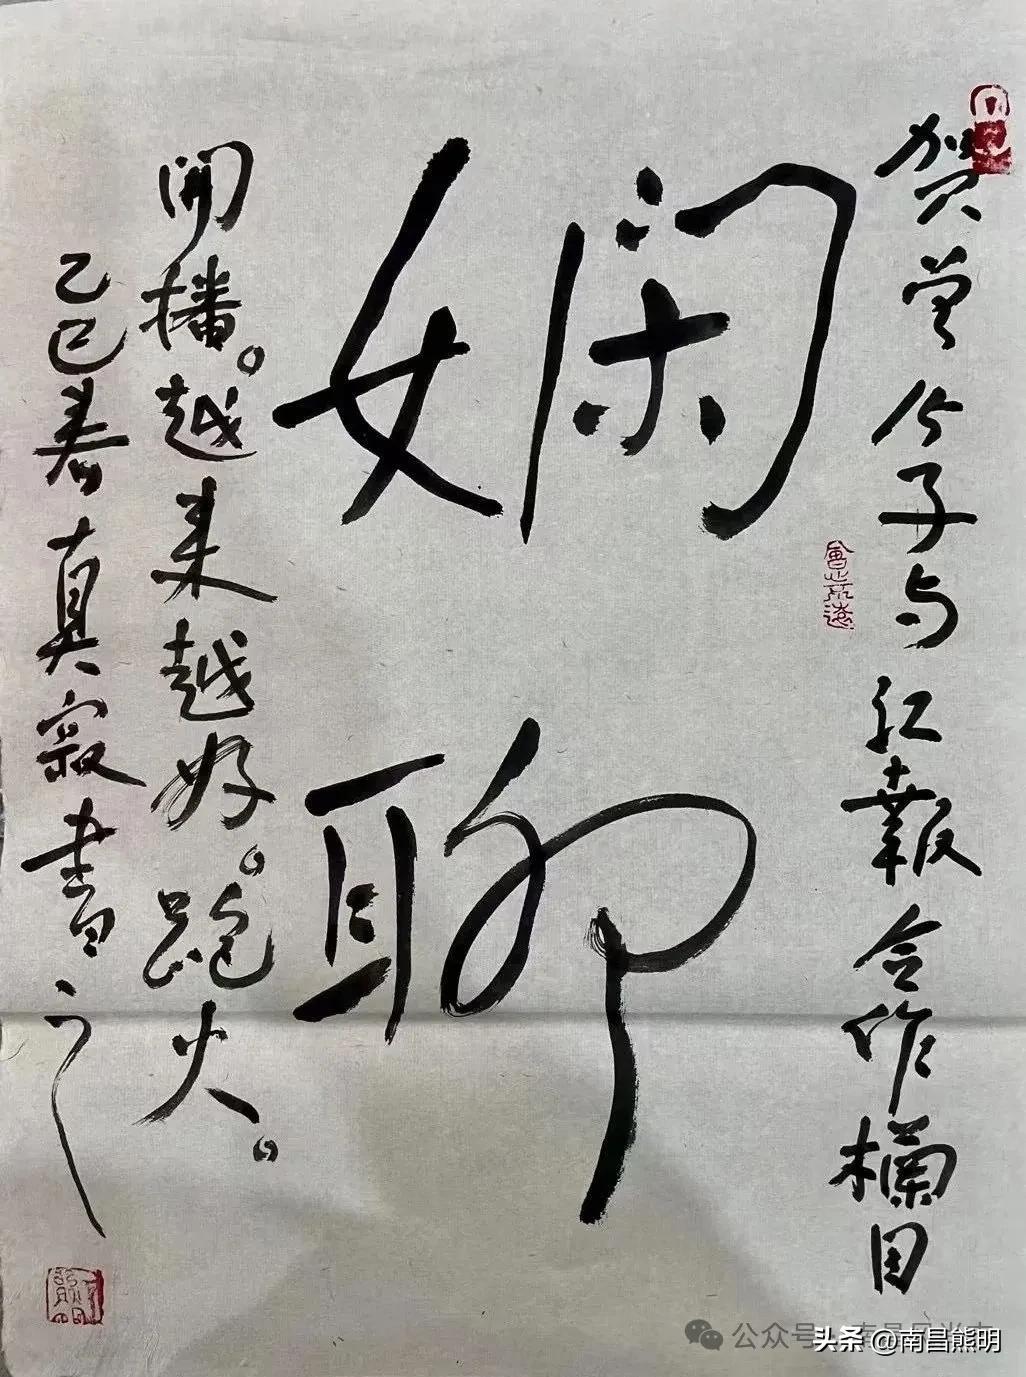 贺曾公子与江報合作欄目
娴聊
開播。越来越好。跑火。
乙巳春真寂書之
公众号
头条 @南昌熊明